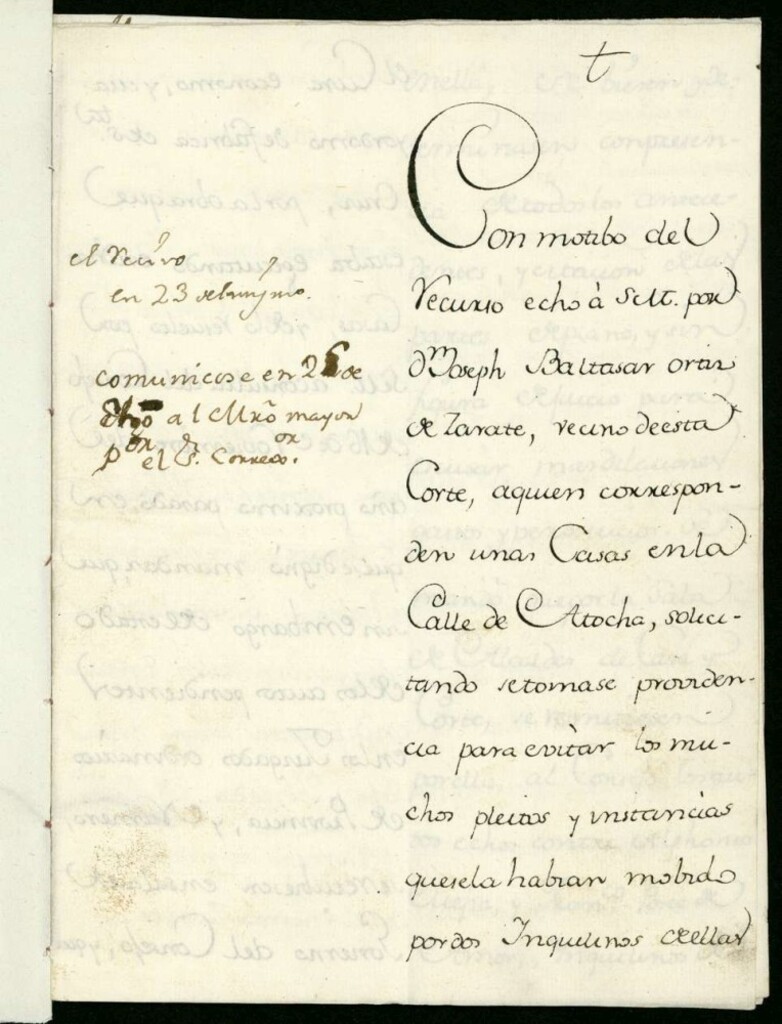 t
Con motibo del
recurso echo à S.M. por
Dn Joseph Baltasar ortiz
de Zarate, vecino de esta
Corte, aquien correspon-
den unas Casas en la
Calle de Atocha, solici-
tando se tomase providen-
cia para evitar los mu-
chos pleitos y instancias
que se la habian mobido
por dos Inquilinos de ellas
el recivo
en 23 del mismo.
comunicose en 26 de
al Mro mayor
por el Sr. Corregor.